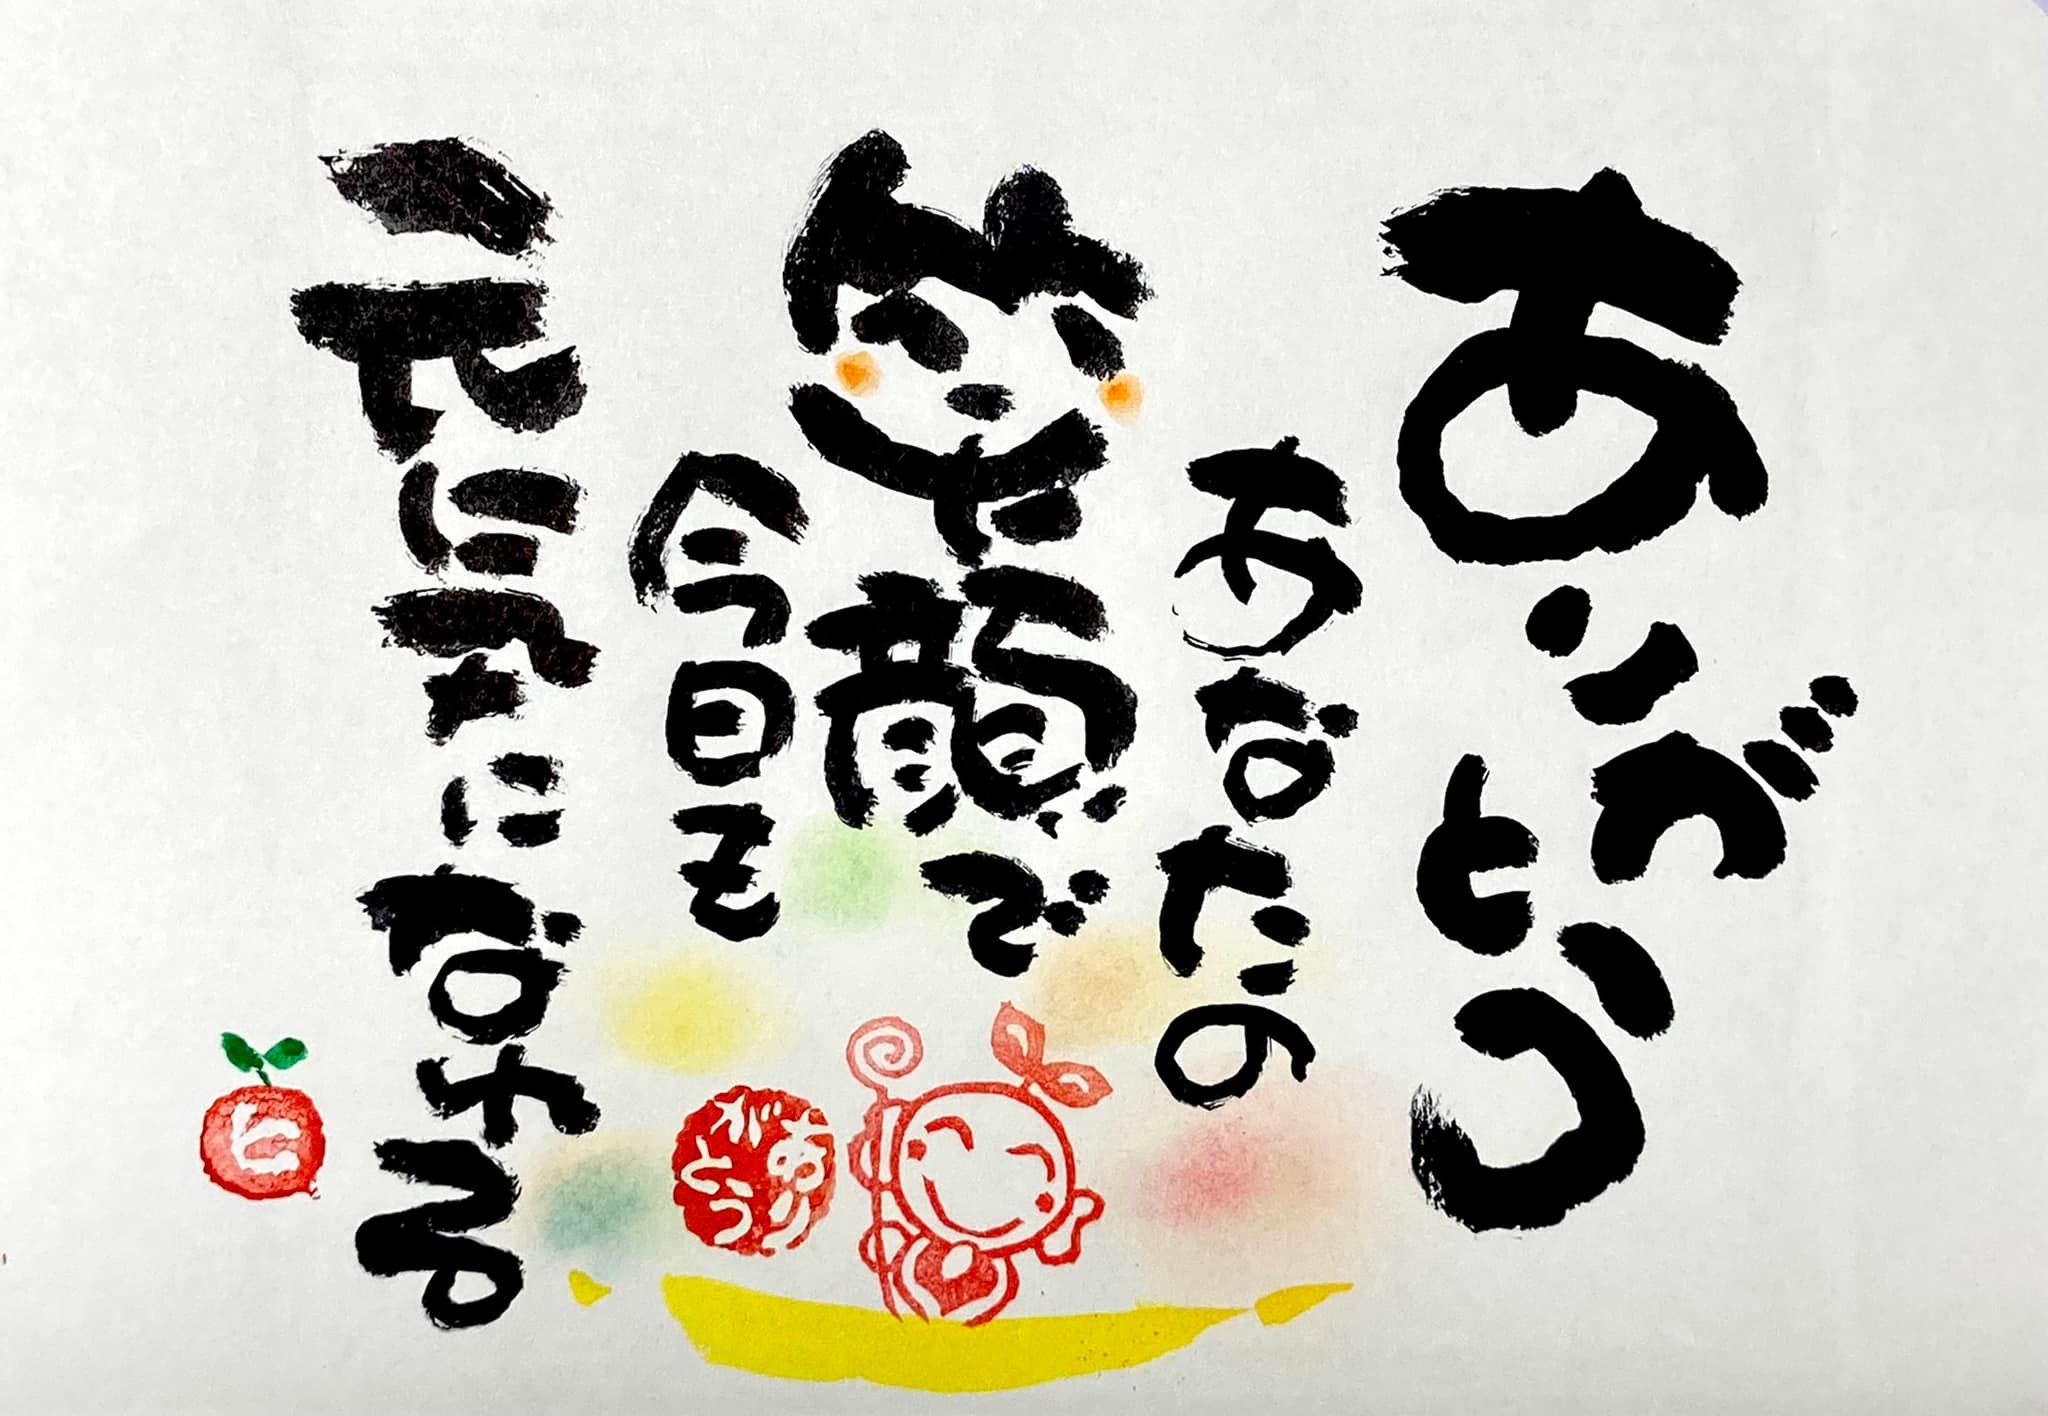 ありがとう
あなたの
笑顔で
今日も
元気になれる
ありがとう
と